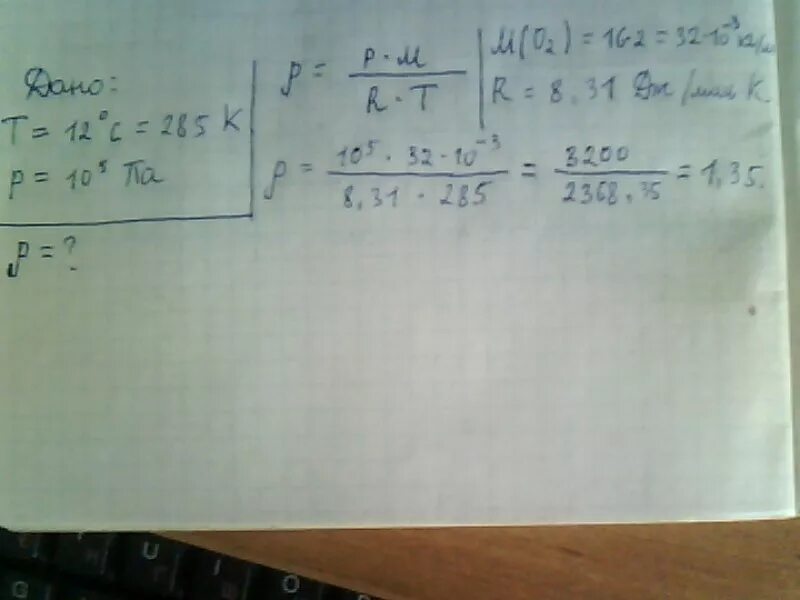 Дано:
T = 12°C = 285 K
p = 10⁵ Па
ρ = ?
ρ = p · M / R · T
M(O₂) = 16·2 = 32·10⁻³ кг/м
R = 8,31 Дж/мол K.
ρ = 10⁵ · 32 · 10⁻³ / 8,31 · 285 = 3200 / 2368,35 = 1,35.
U I O
G